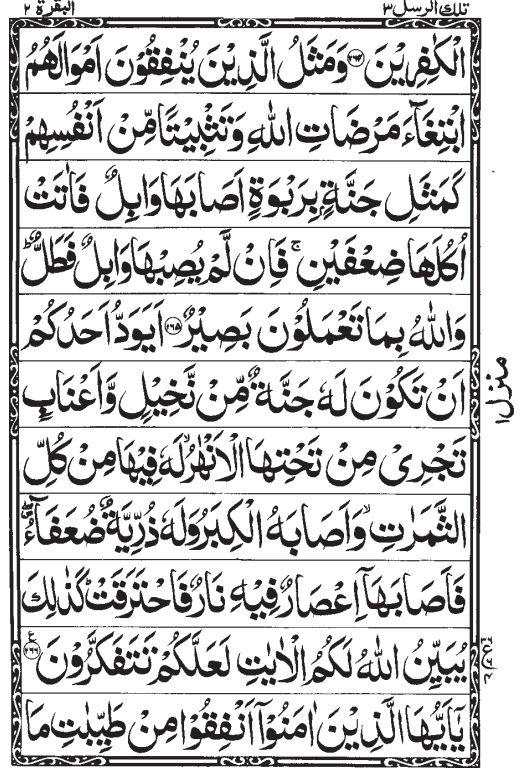 تلك الرسل ٣
البقرة ٢
الْكٰفِرِيْنَ ﴿۲۶۴﴾ وَمَثَلُ الَّذِيْنَ يُنْفِقُوْنَ اَمْوَالَهُمُ
ابْتِغَآءَ مَرْضَاتِ اللّٰهِ وَتَثْبِيْتًا مِّنْ اَنْفُسِهِمْ
كَمَثَلِ جَنَّةٍۭ بِرَبْوَةٍ اَصَابَهَا وَابِلٌ فَاٰتَتْ
اُكُلَهَا ضِعْفَيْنِ ۚ فَاِنْ لَّمْ يُصِبْهَا وَابِلٌ فَطَلٌّ ؕ
وَاللّٰهُ بِمَا تَعْمَلُوْنَ بَصِيْرٌ ﴿۲۶۵﴾ اَيَوَدُّ اَحَدُكُمْ
اَنْ تَكُوْنَ لَهٗ جَنَّةٌ مِّنْ نَّخِيْلٍ وَّاَعْنَابٍ
تَجْرِيْ مِنْ تَحْتِهَا الْاَنْهٰرُ ۙ لَهٗ فِيْهَا مِنْ كُلِّ
الثَّمَرٰتِ ۙ وَاَصَابَهُ الْكِبَرُ وَلَهٗ ذُرِّيَّةٌ ضُعَفَآءُ ۖ
فَاَصَابَهَاۤ اِعْصَارٌ فِيْهِ نَارٌ فَاحْتَرَقَتْ ؕ كَذٰلِكَ
يُبَيِّنُ اللّٰهُ لَكُمُ الْاٰيٰتِ لَعَلَّكُمْ تَتَفَكَّرُوْنَ ﴿۲۶۶﴾ ع
يٰۤاَيُّهَا الَّذِيْنَ اٰمَنُوْۤا اَنْفِقُوْا مِنْ طَيِّبٰتِ مَا
منزل ۱